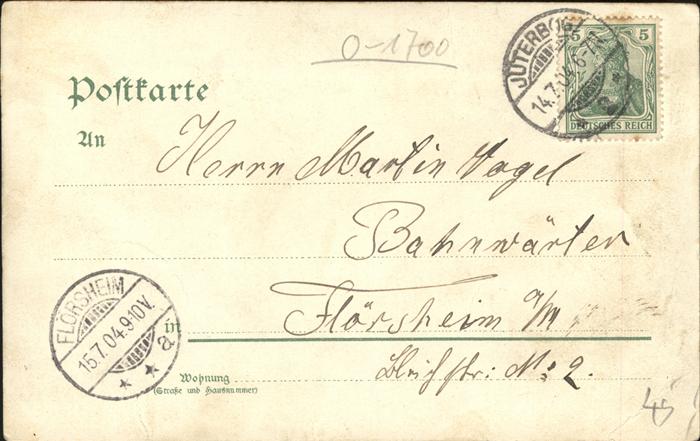 0-1700
JÜTERBOG
14.7.04.6-7N.
a
5 5
DEUTSCHES REICH
Postkarte
An
Herrn Martin Vogel
Bahnwärter
FLÖRSHEIM
15.7.04.910V.
a
in Flörsheim a/M
Wohnung
(Straße und Hausnummer)
Bleichstr: No: 2.